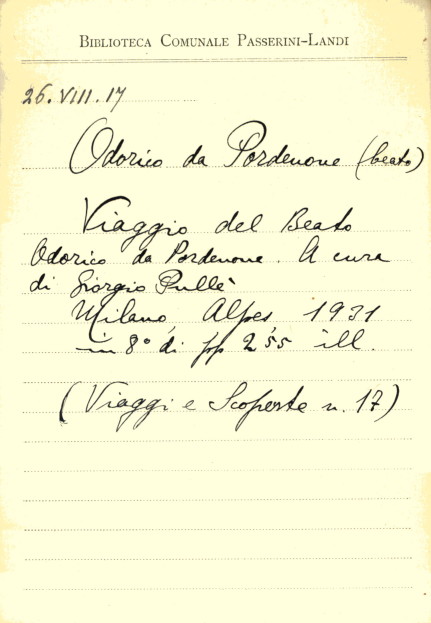 BIBLIOTECA COMUNALE PASSERINI-LANDI
26.VIII.17
Odorico da Pordenone (beato)
Viaggio del Beato
Odorico da Pordenone. A cura
di Giorgio Pullè
Milano, Alpes 1931
in 8° di pp 255 ill.
(Viaggi e Scoperte n. 17)